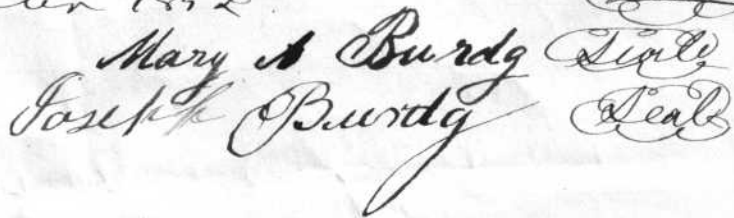 Mary A Burdg Seal
Joseph Burdg Seal